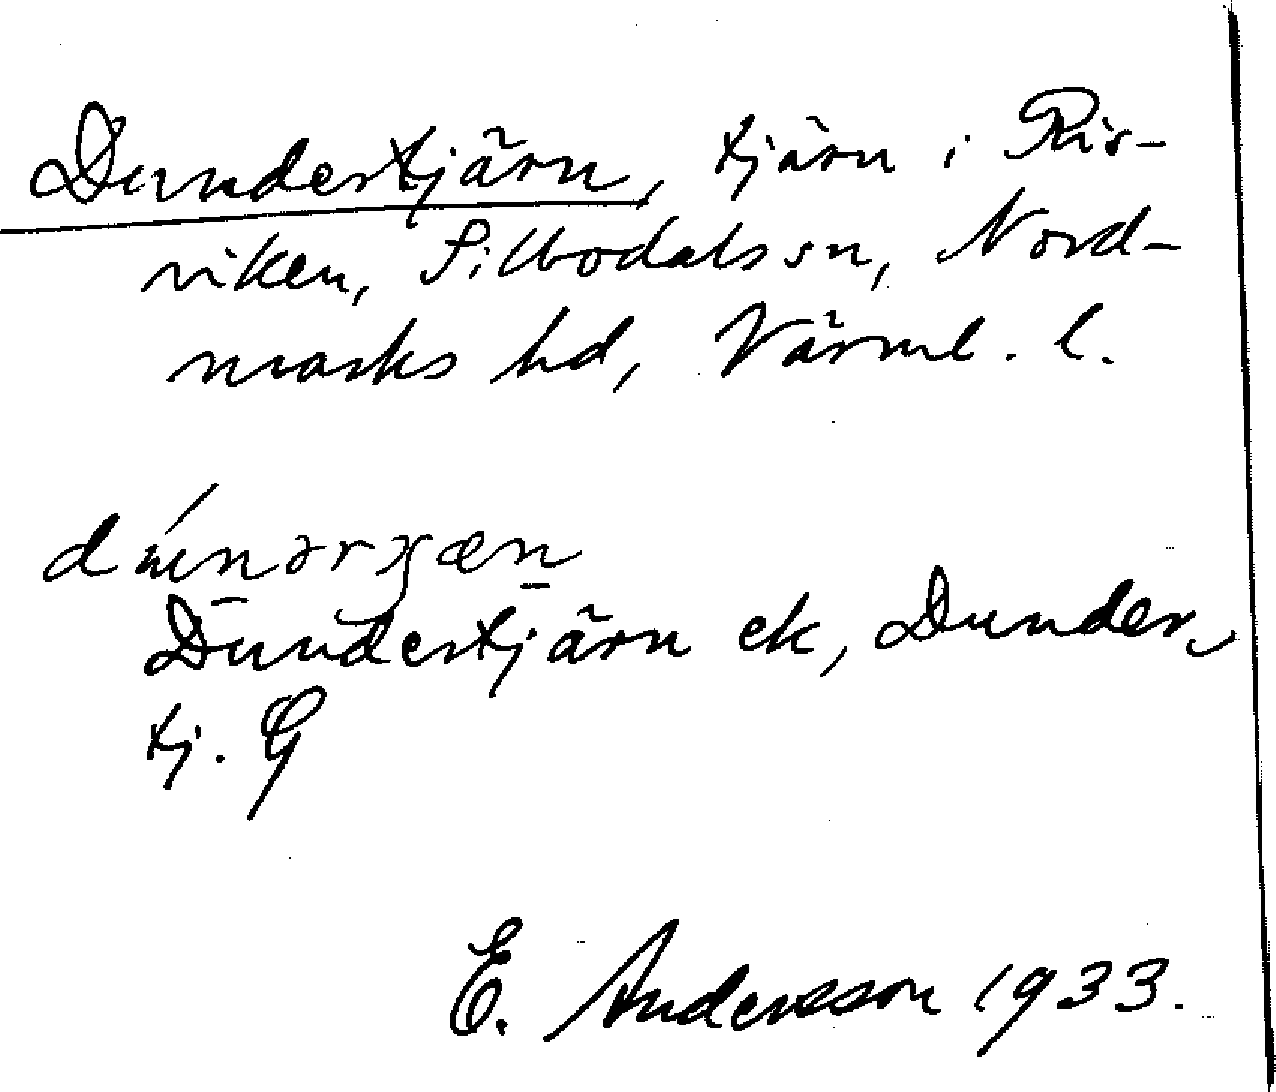 Dundertjärn, tjärn i Ris-
viken, Silbodals sn, Nord-
marks hd, Värml. l.
Dundertjärn ek, Dunder-
tj. G
E. Andersson 1933.